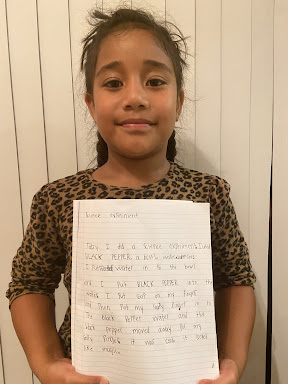 Science experiment
Today I did a science experiment. I used
BLACK PEPPER a bowl and water
I put water in to the bowl
and I put BLACK PEPPER into the
water. I put salt on my finger
and Then Put my salty finger in to
The black Pepper water and the
black pepper moved away for my
salty finger. it was cool. it looked
like magic.